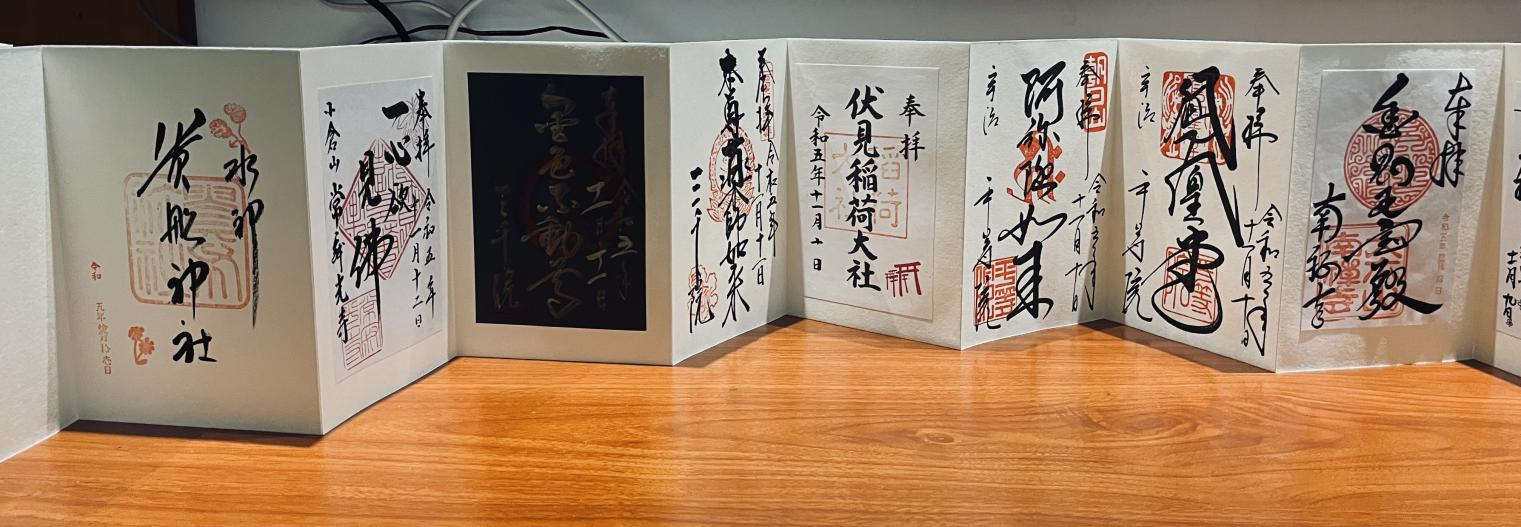 水神
貴船神社
奉拝 令和五年
十一月十二日
一心欲
見佛
小倉山 常寂光寺
奉拝 令和五年
十一月十一日
金色不動尊
三千院
奉拝 令和五年
十一月十一日
本尊薬師如来
三千院
奉拝
伏見稲荷大社
令和五年十一月十日
奉拝 令和五年
十一月十日
阿弥陀如来
宇治 平等院
奉拝 令和五年
十一月十日
鳳凰堂
宇治 平等院
奉拝
金剛王宝殿
南禅寺